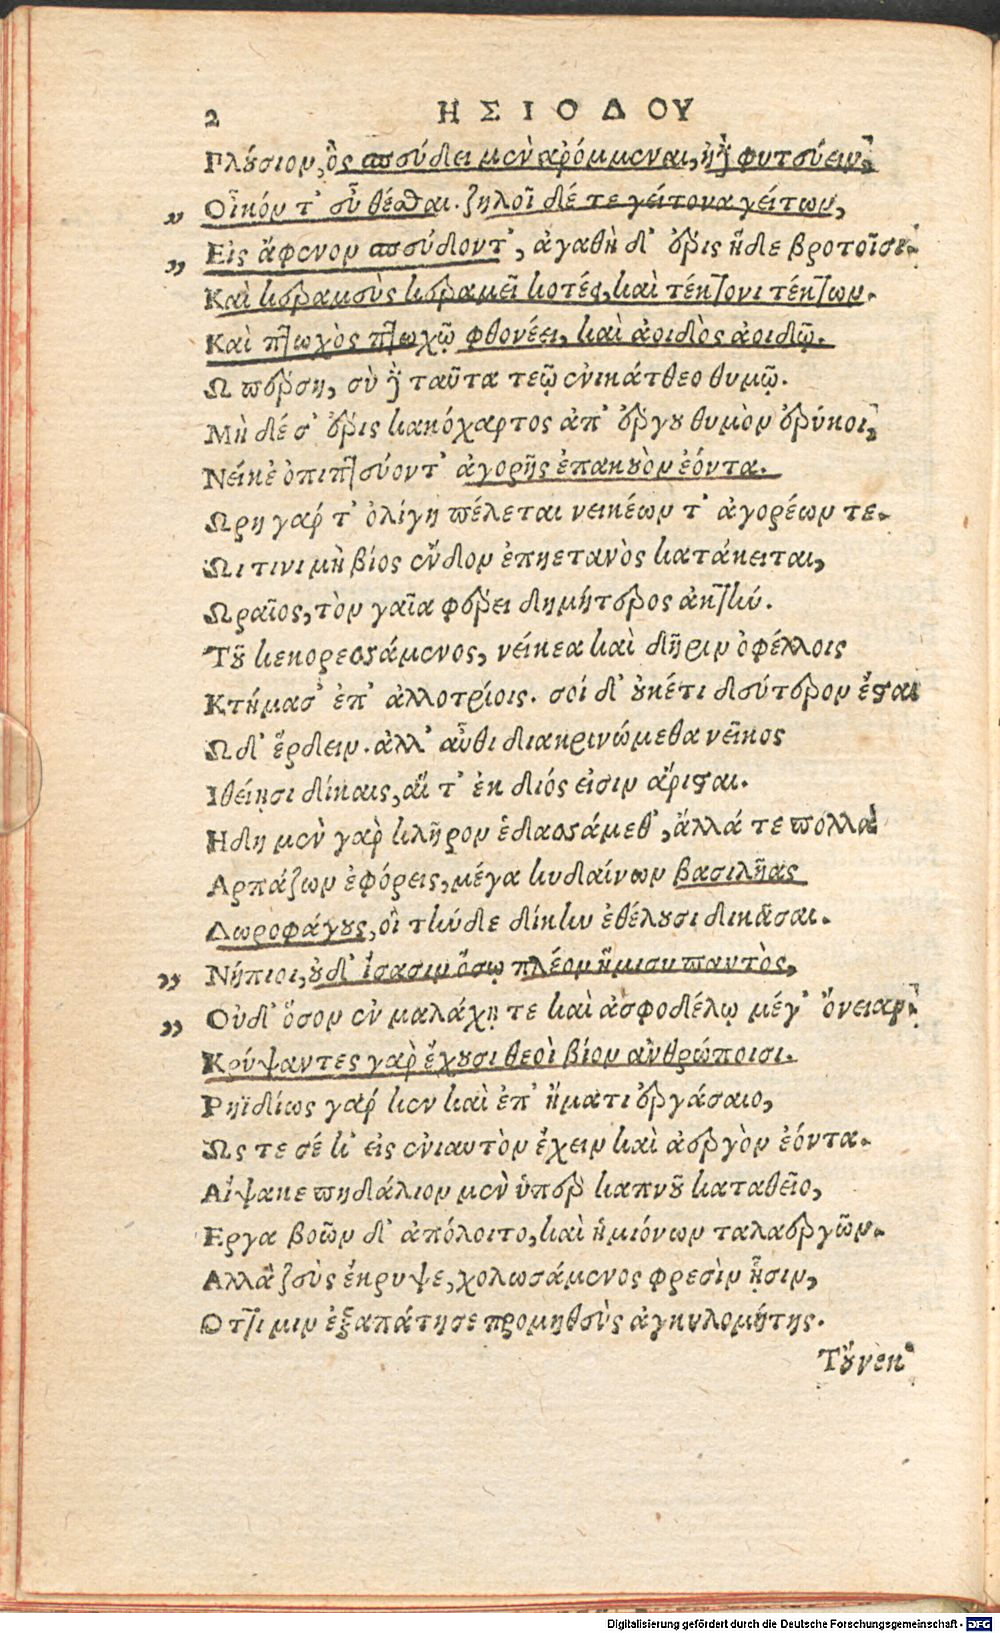 2 ΗΣΙΟΔΟΥ
Πλούσιον, ὃς σπεύδει μὲν ἀρόμμεναι, ἠδὲ φυτεύειν,
„ Οἶκόν τ' εὖ θέσθαι. ζηλοῖ δέ τε γείτονα γείτων,
„ Εἰς ἄφενον σπεύδοντ', ἀγαθὴ δ' ἔρις ἥδε βροτοῖσι.
Καὶ κεραμεὺς κεραμεῖ κοτέει, καὶ τέκτονι τέκτων.
Καὶ πτωχὸς πτωχῷ φθονέει, καὶ ἀοιδὸς ἀοιδῷ.
Ω πέρση, σὺ δὲ ταῦτα τεῷ ἐνικάτθεο θυμῷ.
Μὴ δέ σ' ἔρις κακόχαρτος ἀπ' ἔργου θυμὸν ἐρύκοι,
Νείκε' ὀπιπτεύοντ' ἀγορῆς ἐπακουὸν ἐόντα.
Ωρη γάρ τ' ὀλίγη πέλεται νεικέων τ' ἀγορέων τε.
Ωι τινι μὴ βίος ἔνδον ἐπηετανὸς κατάκειται,
Ωραῖος, τὸν γαῖα φέρει δημήτερος ἀκτήν.
Τοῦ κεκορεσσάμενος, νείκεα καὶ δῆριν ὀφέλλοις
Κτήμασ' ἐπ' ἀλλοτρίοις. σοί δ' οὐκέτι δεύτερον ἔσται
Ωδ' ἔρδειν. ἀλλ' αὖθι διακρινώμεθα νεῖκος
Ιθείῃσι δίκαις, αἵ τ' ἐκ διός εἰσιν ἄρισται.
Ηδη μὲν γὰρ κλῆρον ἐδασσάμεθ', ἀλλά τε πολλὰ
Αρπάζων ἐφόρεις, μέγα κυδαίνων βασιλῆας
Δωροφάγους, οἳ τήνδε δίκην ἐθέλουσι δικᾶσαι.
„ Νήπιοι, οὐδ' ἴσασιν ὅσῳ πλέον ἥμισυ παντὸς,
„ Οὐδ' ὅσον ἐν μαλάχῃ τε καὶ ἀσφοδέλῳ μέγ' ὄνειαρ.
Κρύψαντες γὰρ ἔχουσι θεοὶ βίον ἀνθρώποισι.
Ρηϊδίως γάρ κεν καὶ ἐπ' ἤματι ἐργάσαιο,
Ως τε σέ κ' εἰς ἐνιαυτὸν ἔχειν καὶ ἀεργὸν ἐόντα.
Αἶψα κε πηδάλιον μὲν ὑπὲρ καπνοῦ καταθεῖο,
Εργα βοῶν δ' ἀπόλοιτο, καὶ ἡμιόνων ταλαεργῶν.
Αλλὰ ζεὺς ἔκρυψε, χολωσάμενος φρεσὶν ᾗσιν,
Οττι μιν ἐξαπάτησε προμηθεὺς ἀγκυλομήτης.
Τούνεκ'
Digitalisierung gefördert durch die Deutsche Forschungsgemeinschaft - DFG